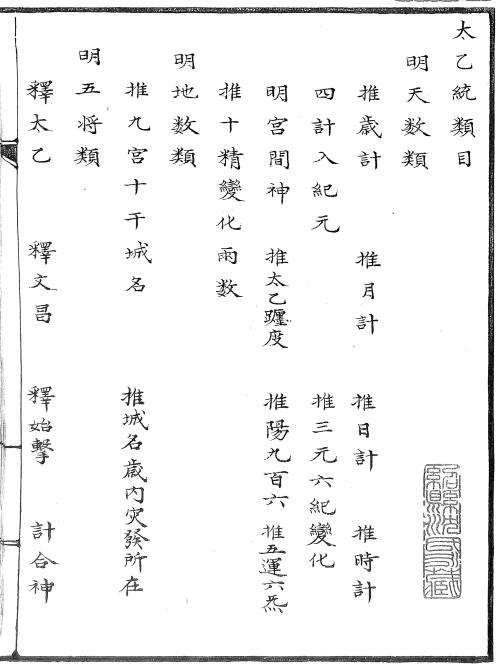 太乙統類目
明天数類
推歳計 推月計 推日計 推時計
四計入紀元 推三元六紀變化
明宫間神 推太乙躔度 推陽九百六 推五運六炁
推十精變化雨数
明地数類
推九宫十干城名 推城名歳内灾發所在
明五将類
釋太乙 釋文昌 釋始擊 計合神